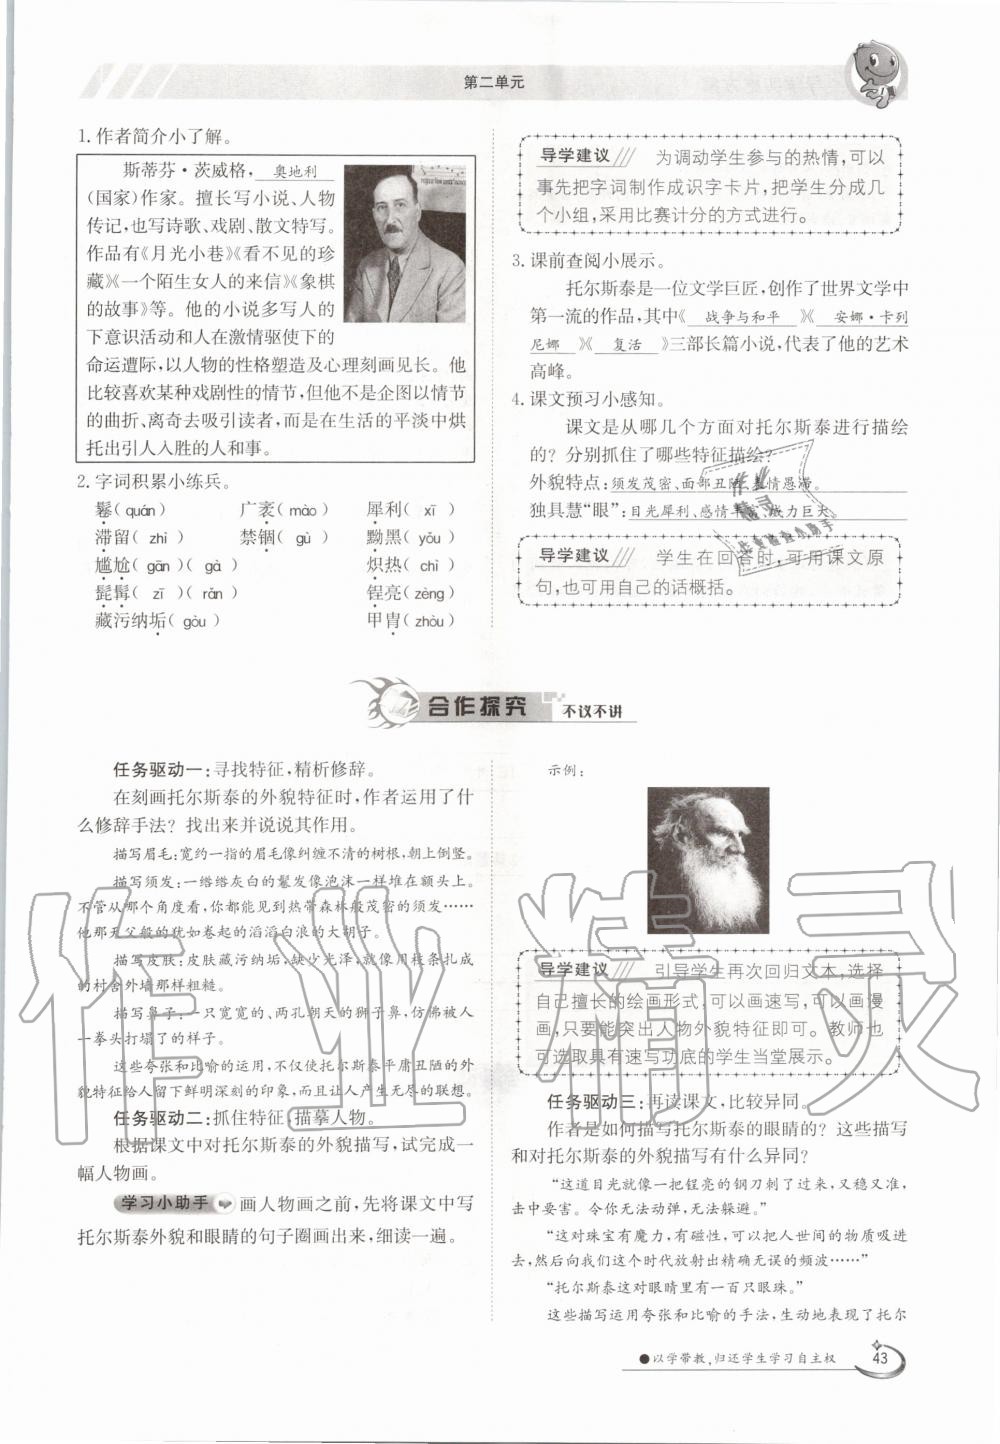 第二单元
1. 作者简介小了解。
斯蒂芬·茨威格,奥地利
(国家)作家。擅长写小说、人物
传记,也写诗歌、戏剧、散文特写。
作品有《月光小巷》《看不见的珍
藏》《一个陌生女人的来信》《象棋
的故事》等。他的小说多写人的
下意识活动和人在激情驱使下的
命运遭际,以人物的性格塑造及心理刻画见长。他
比较喜欢某种戏剧性的情节,但他不是企图以情节
的曲折、离奇去吸引读者,而是在生活的平淡中烘
托出引人入胜的人和事。
2. 字词积累小练兵。
鬈(quán) 广袤(mào) 犀利(xī)
滞留(zhì) 禁锢(gù) 黝黑(yǒu)
尴尬(gān)(gà) 炽热(chì)
髭髯(zī)(rǎn) 锃亮(zèng)
藏污纳垢(gòu) 甲胄(zhòu)
导学建议 为调动学生参与的热情,可以
事先把字词制作成识字卡片,把学生分成几
个小组,采用比赛计分的方式进行。
3. 课前查阅小展示。
托尔斯泰是一位文学巨匠,创作了世界文学中
第一流的作品,其中《战争与和平》《安娜·卡列
尼娜》《复活》三部长篇小说,代表了他的艺术
高峰。
4. 课文预习小感知。
课文是从哪几个方面对托尔斯泰进行描绘
的?分别抓住了哪些特征描绘?
外貌特点:须发茂密、面部丑陋、表情愚滞。
独具慧“眼”:目光犀利、感情丰富、威力巨大。
导学建议 学生在回答时,可用课文原
句,也可用自己的话概括。
合作探究 不议不讲
任务驱动一:寻找特征,精析修辞。
在刻画托尔斯泰的外貌特征时,作者运用了什
么修辞手法?找出来并说说其作用。
描写眉毛:宽约一指的眉毛像纠缠不清的树根,朝上倒竖。
描写须发:一绺绺灰白的鬈发像泡沫一样堆在额头上。
不管从哪个角度看,你都能见到热带森林般茂密的须发……
他那天父般的犹如卷起的滔滔白浪的大胡子。
描写皮肤:皮肤藏污纳垢,缺少光泽,就像用枝条扎成
的村舍外墙那样粗糙。
描写鼻子:一只宽宽的、两孔朝天的狮子鼻,仿佛被人
一拳头打塌了的样子。
这些夸张和比喻的运用,不仅使托尔斯泰平庸丑陋的外
貌特征给人留下鲜明深刻的印象,而且让人产生无尽的联想。
任务驱动二:抓住特征,描摹人物。
根据课文中对托尔斯泰的外貌描写,试完成一
幅人物画。
学习小助手 画人物画之前,先将课文中写
托尔斯泰外貌和眼睛的句子圈画出来,细读一遍。
示例:
导学建议 引导学生再次回归文本,选择
自己擅长的绘画形式,可以画速写,可以画漫
画,只要能突出人物外貌特征即可。教师也
可选取具有速写功底的学生当堂展示。
任务驱动三:再读课文,比较异同。
作者是如何描写托尔斯泰的眼睛的?这些描写
和对托尔斯泰的外貌描写有什么异同?
“这道目光就像一把锃亮的钢刀刺了过来,又稳又准,
击中要害。令你无法动弹,无法躲避。”
“这对珠宝有魔力,有磁性,可以把人世间的物质吸进
去,然后向我们这个时代放射出精确无误的频波……”
“托尔斯泰这对眼睛里有一百只眼珠。”
这些描写运用夸张和比喻的手法,生动地表现了托尔
●以学带教,归还学生学习自主权
43
作业精灵